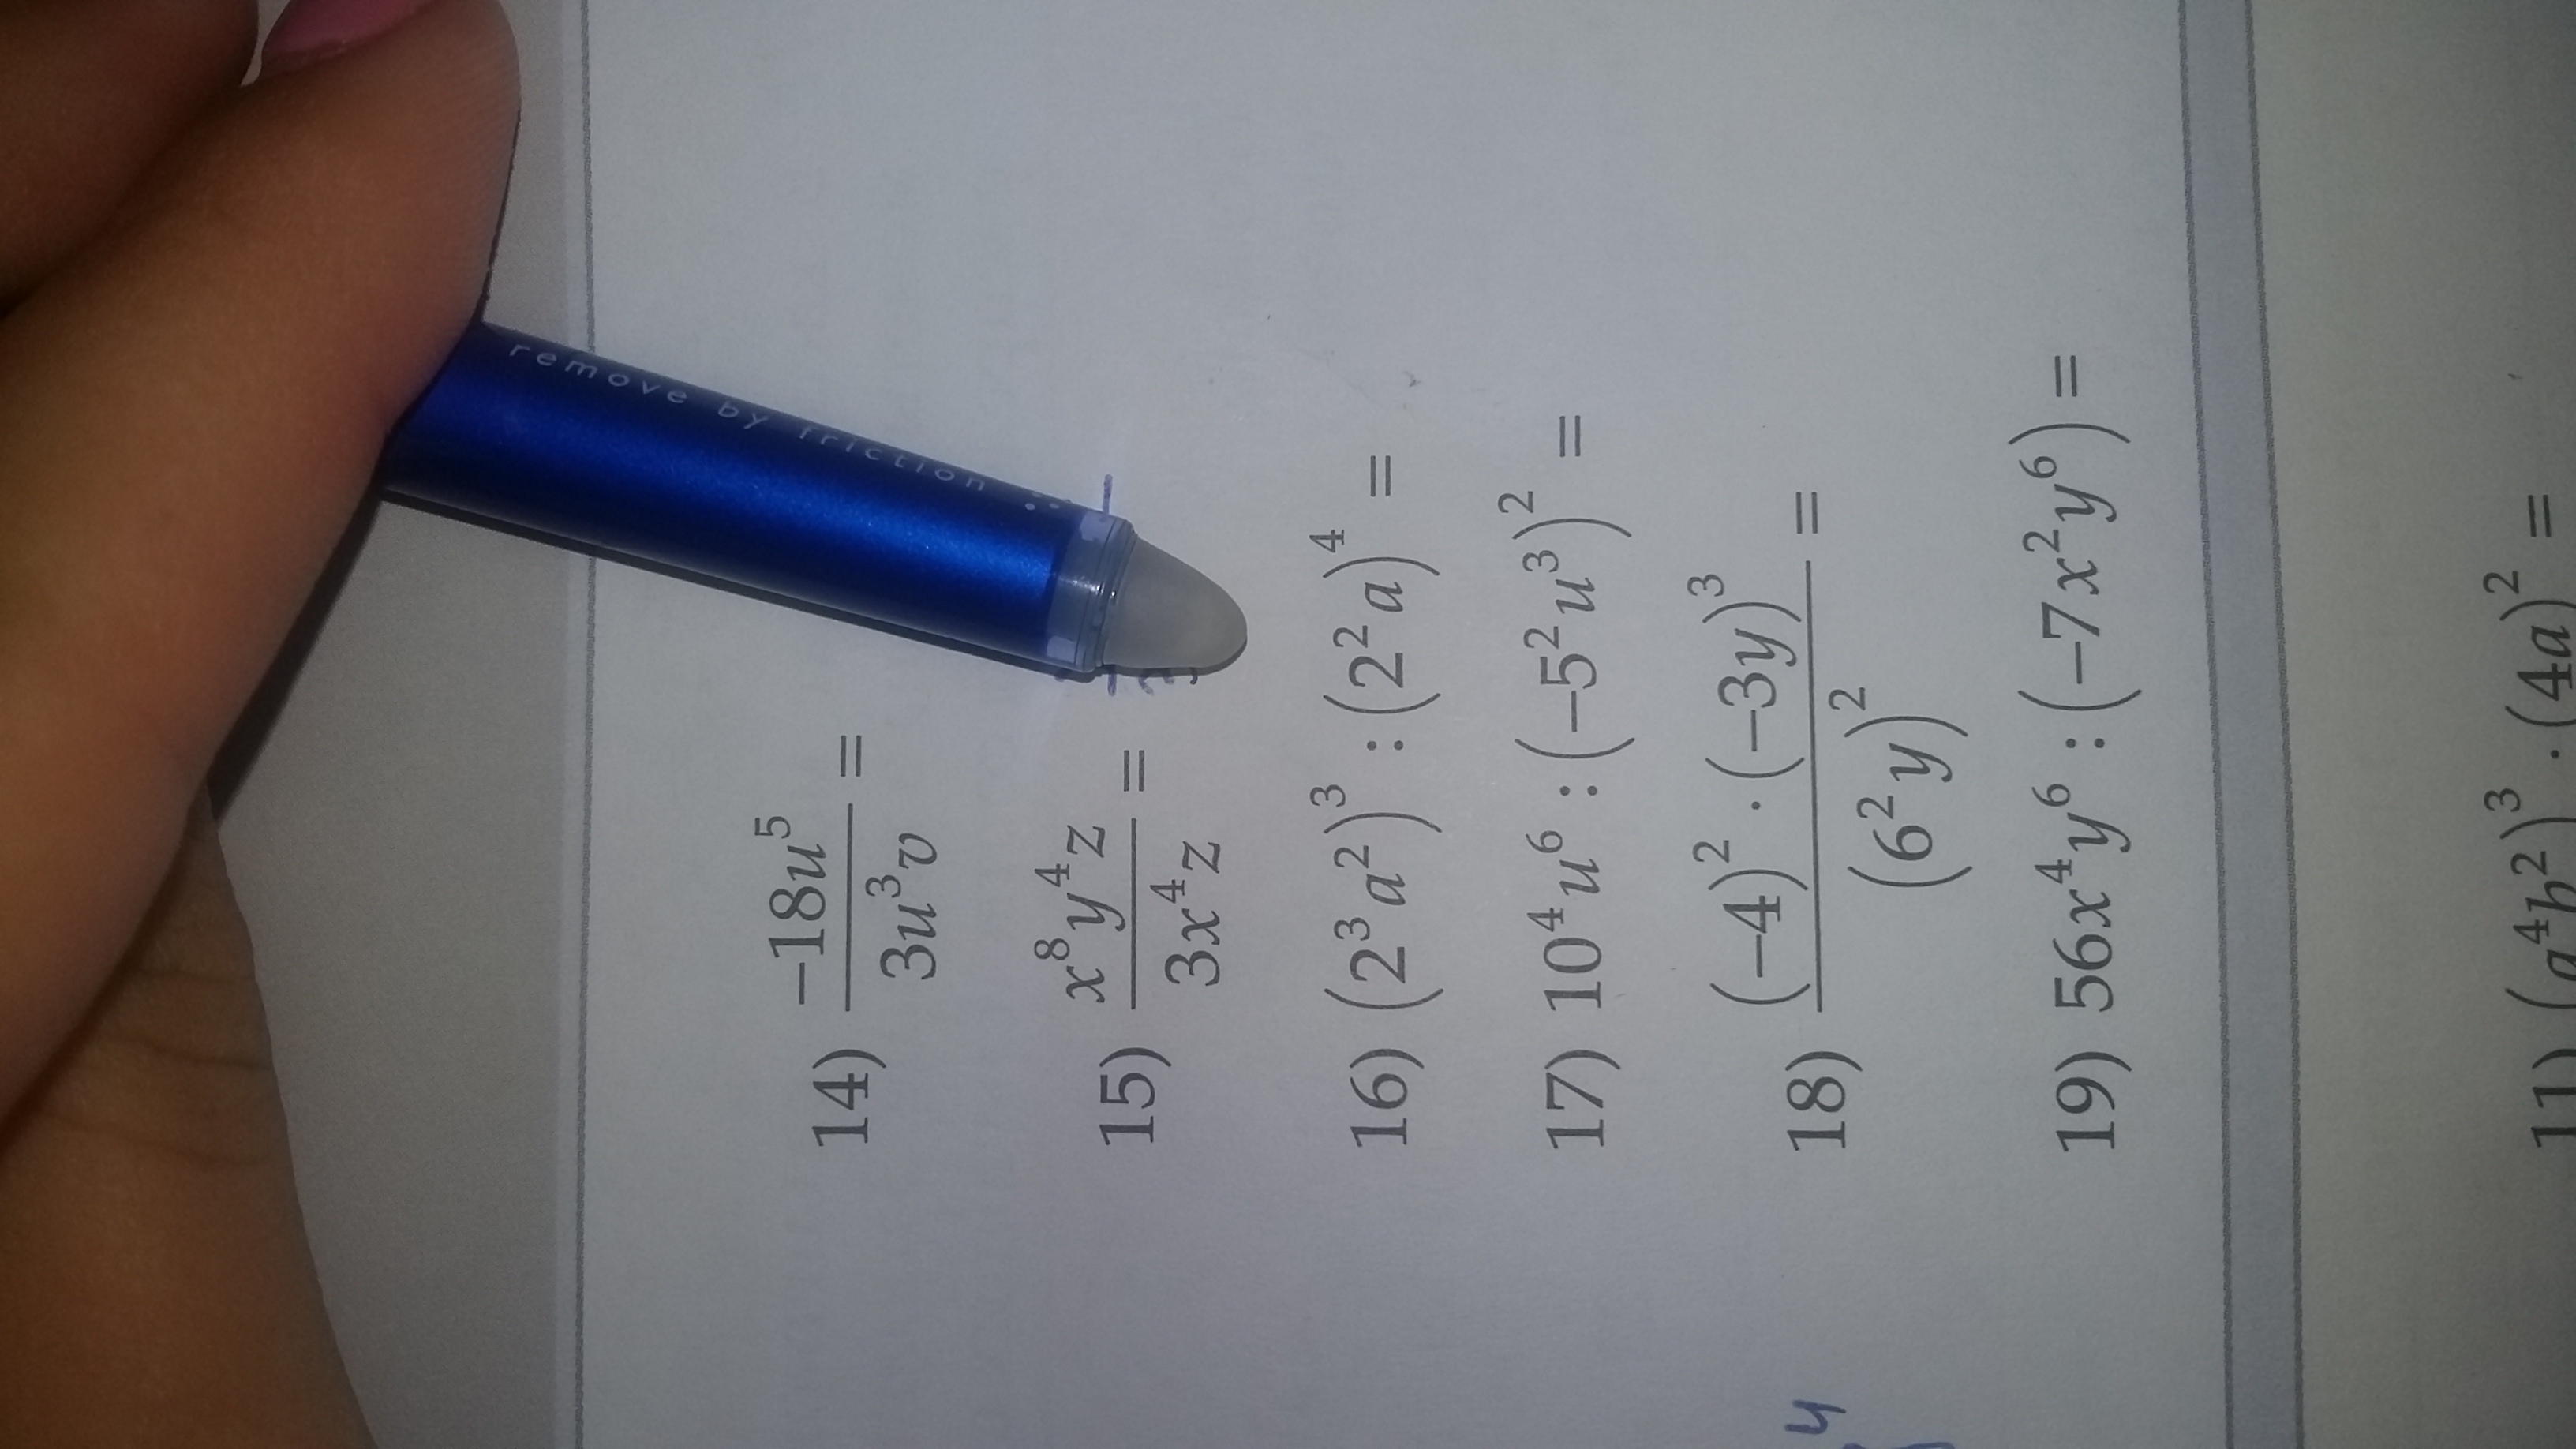 remove by friction
14) \frac{-18u^5}{3u^3v} =
15) \frac{x^8y^4z}{3x^4z} =
16) (2^3a^2)^3 : (2^2a)^4 =
17) 10^4u^6 : (-5^2u^3)^2 =
18) \frac{(-4)^2 \cdot (-3y)^3}{(6^2y)^2} =
19) 56x^4y^6 : (-7x^2y^6) =
11) (a^4b^2)^3 \cdot (4a)^2 =
y